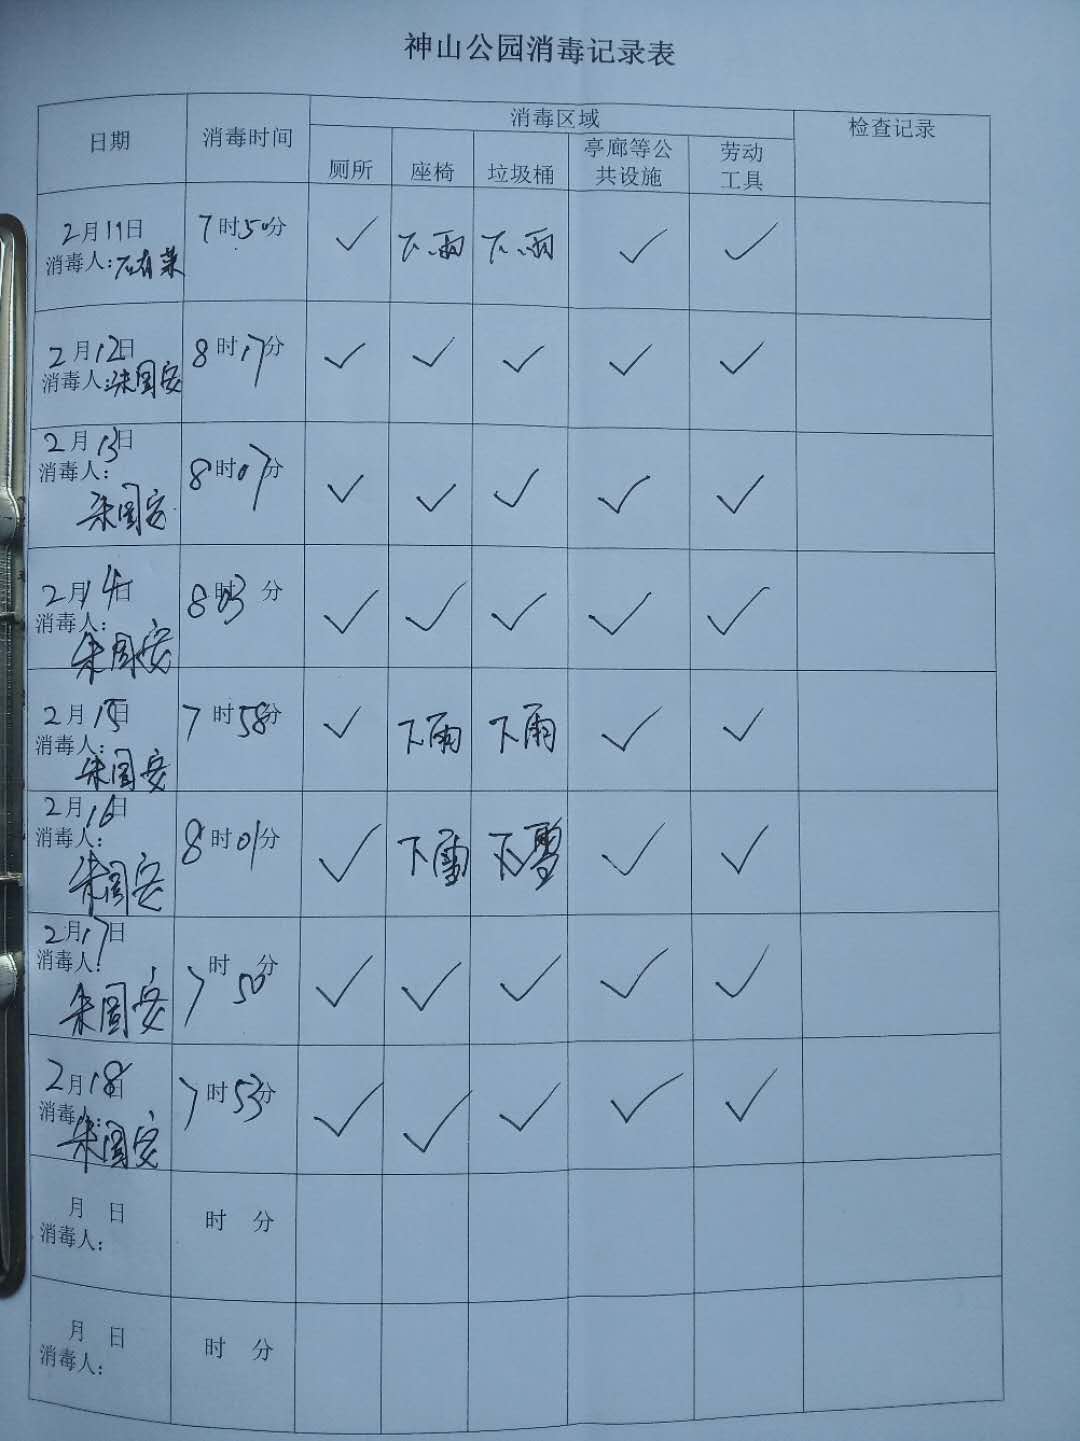 神山公园消毒记录表
日期 消毒时间 消毒区域 检查记录
厕所 座椅 垃圾桶 亭廊等公共设施 劳动工具
2月11日 7时50分 ✓ 下雨 下雨 ✓ ✓
消毒人:
2月12日 8时17分 ✓ ✓ ✓ ✓ ✓
消毒人:朱国安
2月13日 8时07分 ✓ ✓ ✓ ✓ ✓
消毒人:
朱国安
2月14日 8时03分 ✓ ✓ ✓ ✓ ✓
消毒人:
朱国安
2月15日 7时58分 ✓ 下雨 下雨 ✓ ✓
消毒人:
朱国安
2月16日 8时01分 ✓ 下雪 下雪 ✓ ✓
消毒人:
朱国安
2月17日 7时50分 ✓ ✓ ✓ ✓ ✓
消毒人:
朱国安
2月18日 7时53分 ✓ ✓ ✓ ✓ ✓
消毒人:
朱国安
月 日 时 分
消毒人:
月 日 时 分
消毒人: